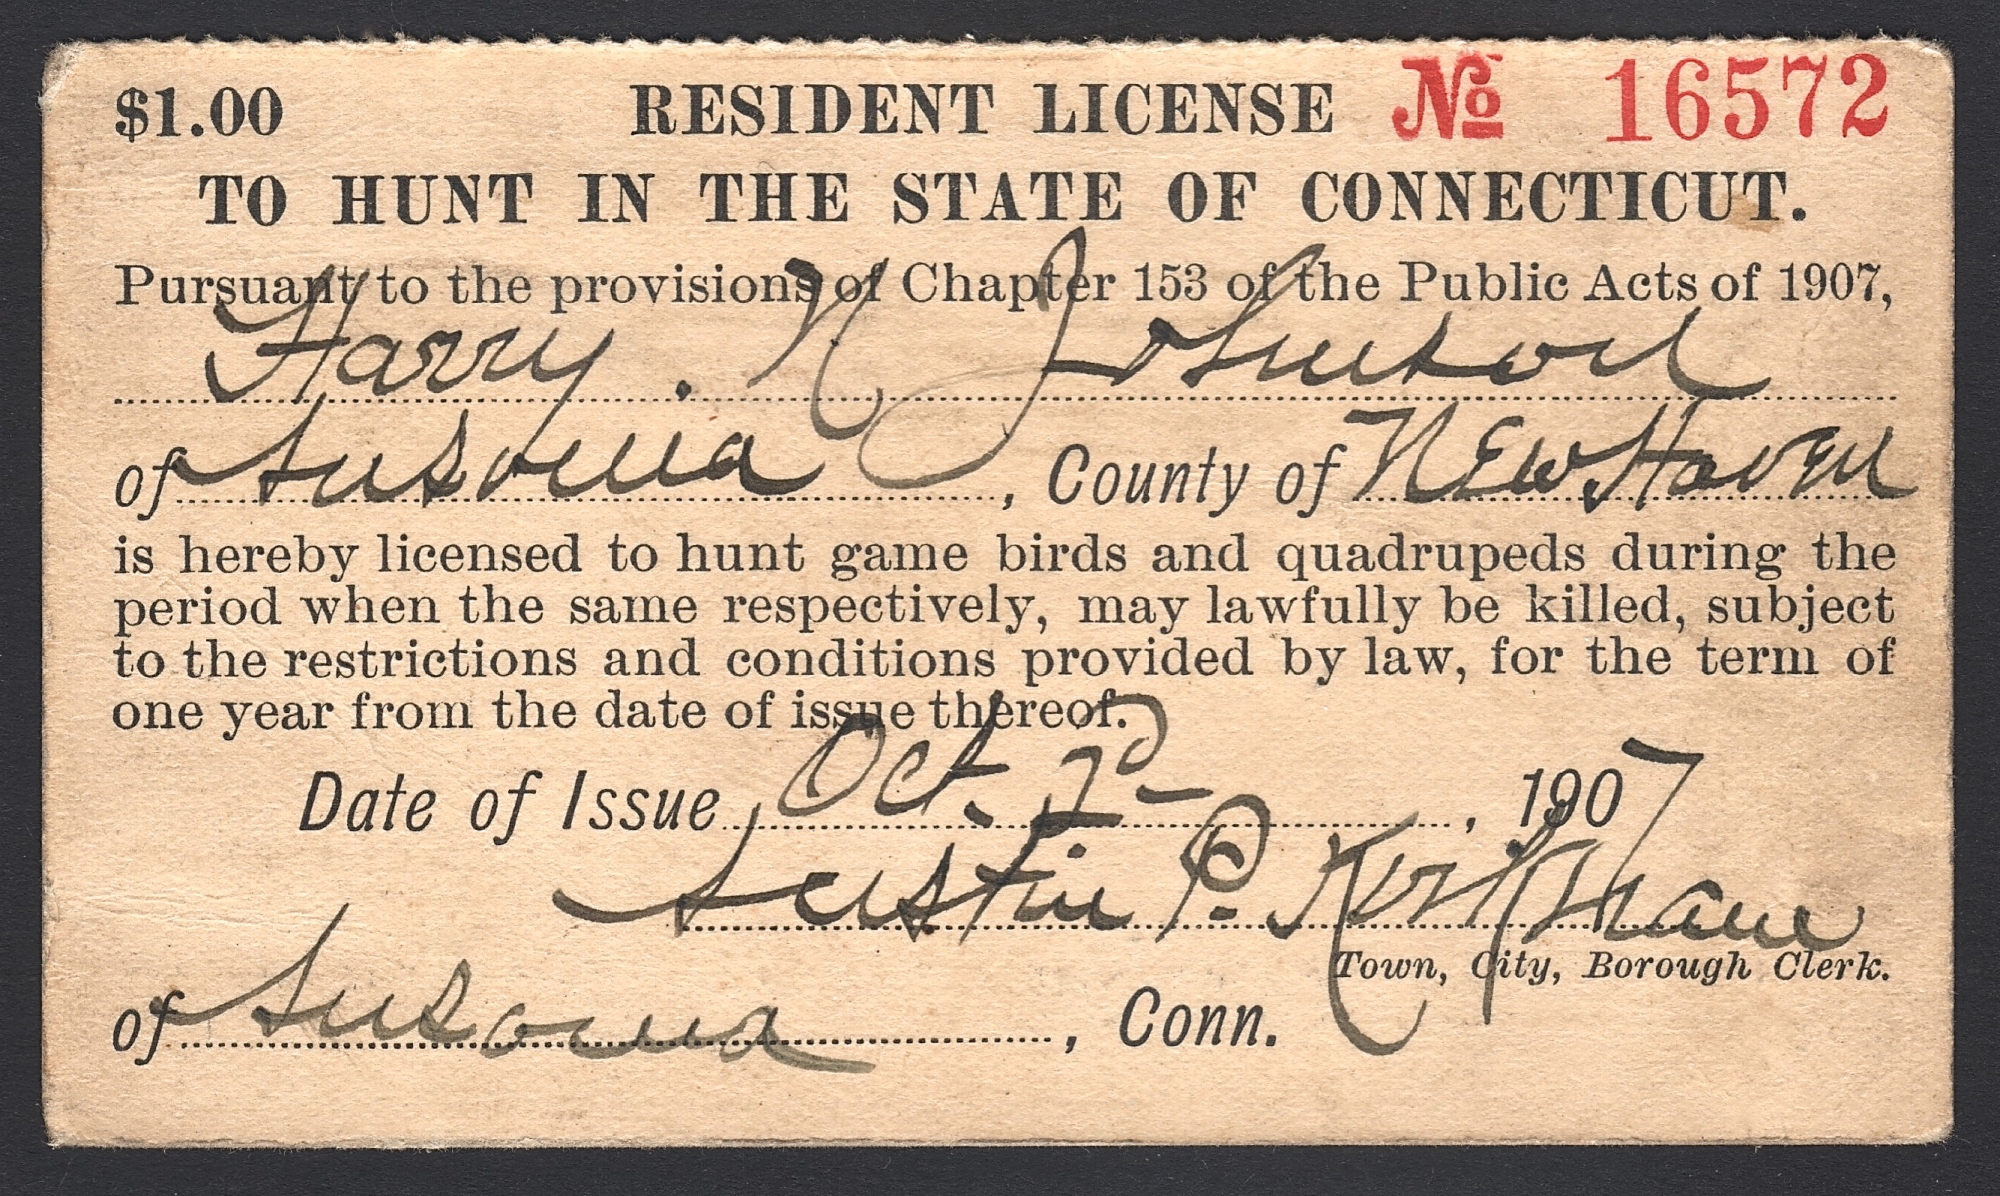 $1.00 RESIDENT LICENSE No 16572
TO HUNT IN THE STATE OF CONNECTICUT.
Pursuant to the provisions of Chapter 153 of the Public Acts of 1907,
Harry. N Johnson
of Ansonia, County of New Haven
is hereby licensed to hunt game birds and quadrupeds during the
period when the same respectively, may lawfully be killed, subject
to the restrictions and conditions provided by law, for the term of
one year from the date of issue thereof.
Date of Issue Oct. 2d, 1907
P. Kirkham
Town, City, Borough Clerk.
of Ansonia, Conn.